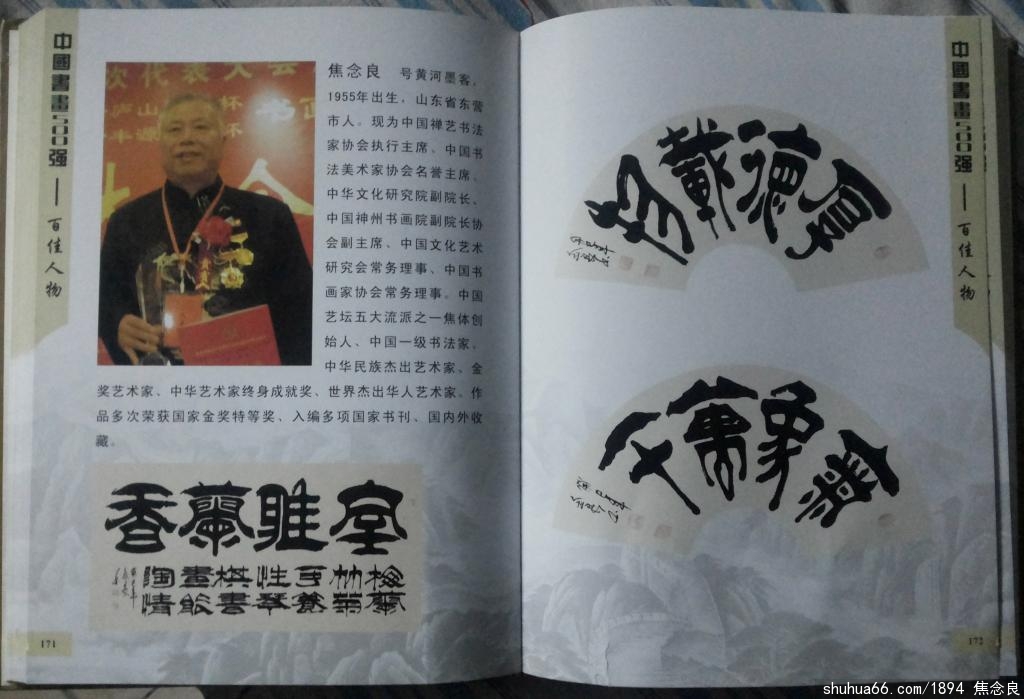 中國書畫500强——百佳人物
焦念良　号黄河墨客，
1955年出生，山东省东营
市人。现为中国禅艺书法
家协会执行主席、中国书
法美术家协会名誉主席、
中华文化研究院副院长、
中国神州书画院副院长协
会副主席、中国文化艺术
研究会常务理事、中国书
画家协会常务理事。中国
艺坛五大流派之一焦体创
始人、中国一级书法家、
中华民族杰出艺术家、金
奖艺术家、中华艺术家终身成就奖、世界杰出华人艺术家。作
品多次荣获国家金奖特等奖、入编多项国家书刊、国内外收
藏。
次代表大会
庐山 杯
丰源 杯
室雅蘭香
梅蘭
竹菊
可養
性琴
棋書
畫能
陶情
171
中國書畫500强——百佳人物
厚德載物
氣象萬千
172
shuhua66.com/1894 焦念良